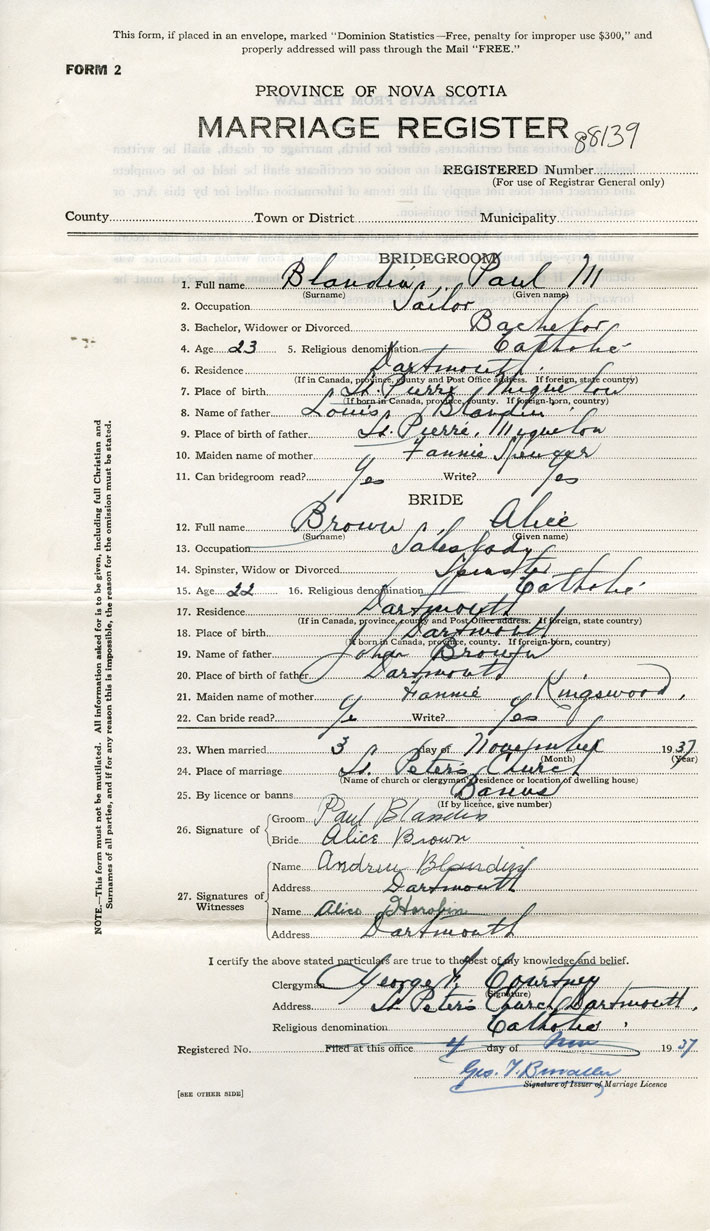 This form, if placed in an envelope, marked "Dominion Statistics—Free, penalty for improper use $300," and
properly addressed will pass through the Mail "FREE."
FORM 2
PROVINCE OF NOVA SCOTIA
MARRIAGE REGISTER 88139
REGISTERED Number
(For use of Registrar General only)
County Town or District Municipality
BRIDEGROOM
1. Full name Blandin, Paul M
(Surname) (Given name)
2. Occupation Tailor
3. Bachelor, Widower or Divorced Bachelor
4. Age 23 5. Religious denomination Catholic
6. Residence Dartmouth
(If in Canada, province, county and Post Office address. If foreign, state country)
7. Place of birth St. Pierre Miquelon
(If born in Canada, province, county. If foreign-born, country)
8. Name of father Louis Blandin
9. Place of birth of father St. Pierre, Miquelon
10. Maiden name of mother Fannie
11. Can bridegroom read? Yes Write? Yes
BRIDE
12. Full name Brown, Alice
(Surname) (Given name)
13. Occupation Saleslady
14. Spinster, Widow or Divorced Spinster
15. Age 22 16. Religious denomination Catholic
17. Residence Dartmouth
(If in Canada, province, county and Post Office address. If foreign, state country)
18. Place of birth Dartmouth
(If born in Canada, province, county. If foreign-born, country)
19. Name of father John Brown
20. Place of birth of father Dartmouth
21. Maiden name of mother Fannie Kingswood,
22. Can bride read? Yes Write? Yes
23. When married 3 day of November 1937
(Month) (Year)
24. Place of marriage St. Peter's Church
(Name of church or clergyman's residence or location of dwelling house)
25. By licence or banns Banns
(If by licence, give number)
26. Signature of Groom Paul Blandin
Bride Alice Brown
27. Signatures of Witnesses Name Andrew Blandin
Address Dartmouth
Name Alice
Address Dartmouth
I certify the above stated particulars are true to the best of my knowledge and belief.
Clergyman George F. Courtney
(Signature)
Address St. Peter's Church, Dartmouth,
Religious denomination Catholic
Registered No. Filed at this office 4 day of Nov 1937
Geo. T.
Signature of Issuer of Marriage Licence
[SEE OTHER SIDE]
NOTE.—This form must not be mutilated. All information asked for is to be given, including full Christian and
Surnames of all parties, and if for any reason this is impossible, the reason for the omission must be stated.